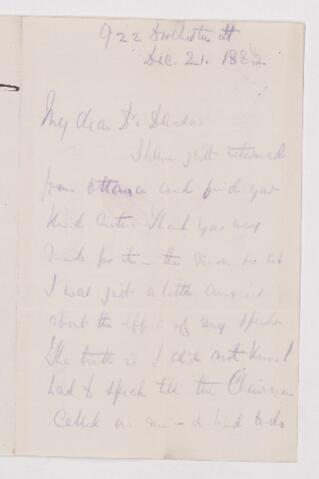 922 Dorchester St
Dec. 21. 1882
My dear Dr Dawson
I have just returned
from Ottawa and find your
kind note. Thank you very
much for it - the more so as
I was just a little anxious
about the effect of my speech
The truth is I did not know I
had to speak till the Chairman
called on me - & had to do